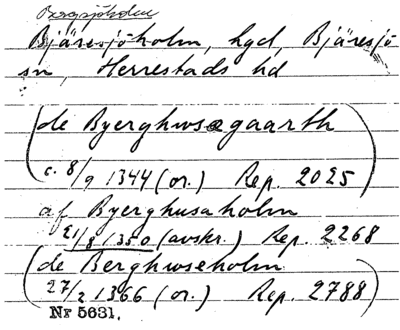 Bergsjöholm
Bjäresjöholm, hgd, Bjäresjö
sn, Herrestads hd
(de Byerghusægaarth
c. 8/9 1344 (or.) Rep. 2025)
af Byerghusaholm
21/8 1350 (avskr.) Rep. 2268
(de Berghuseholm
27/2 1366 (or.) Rep. 2788)
Nr 5631.